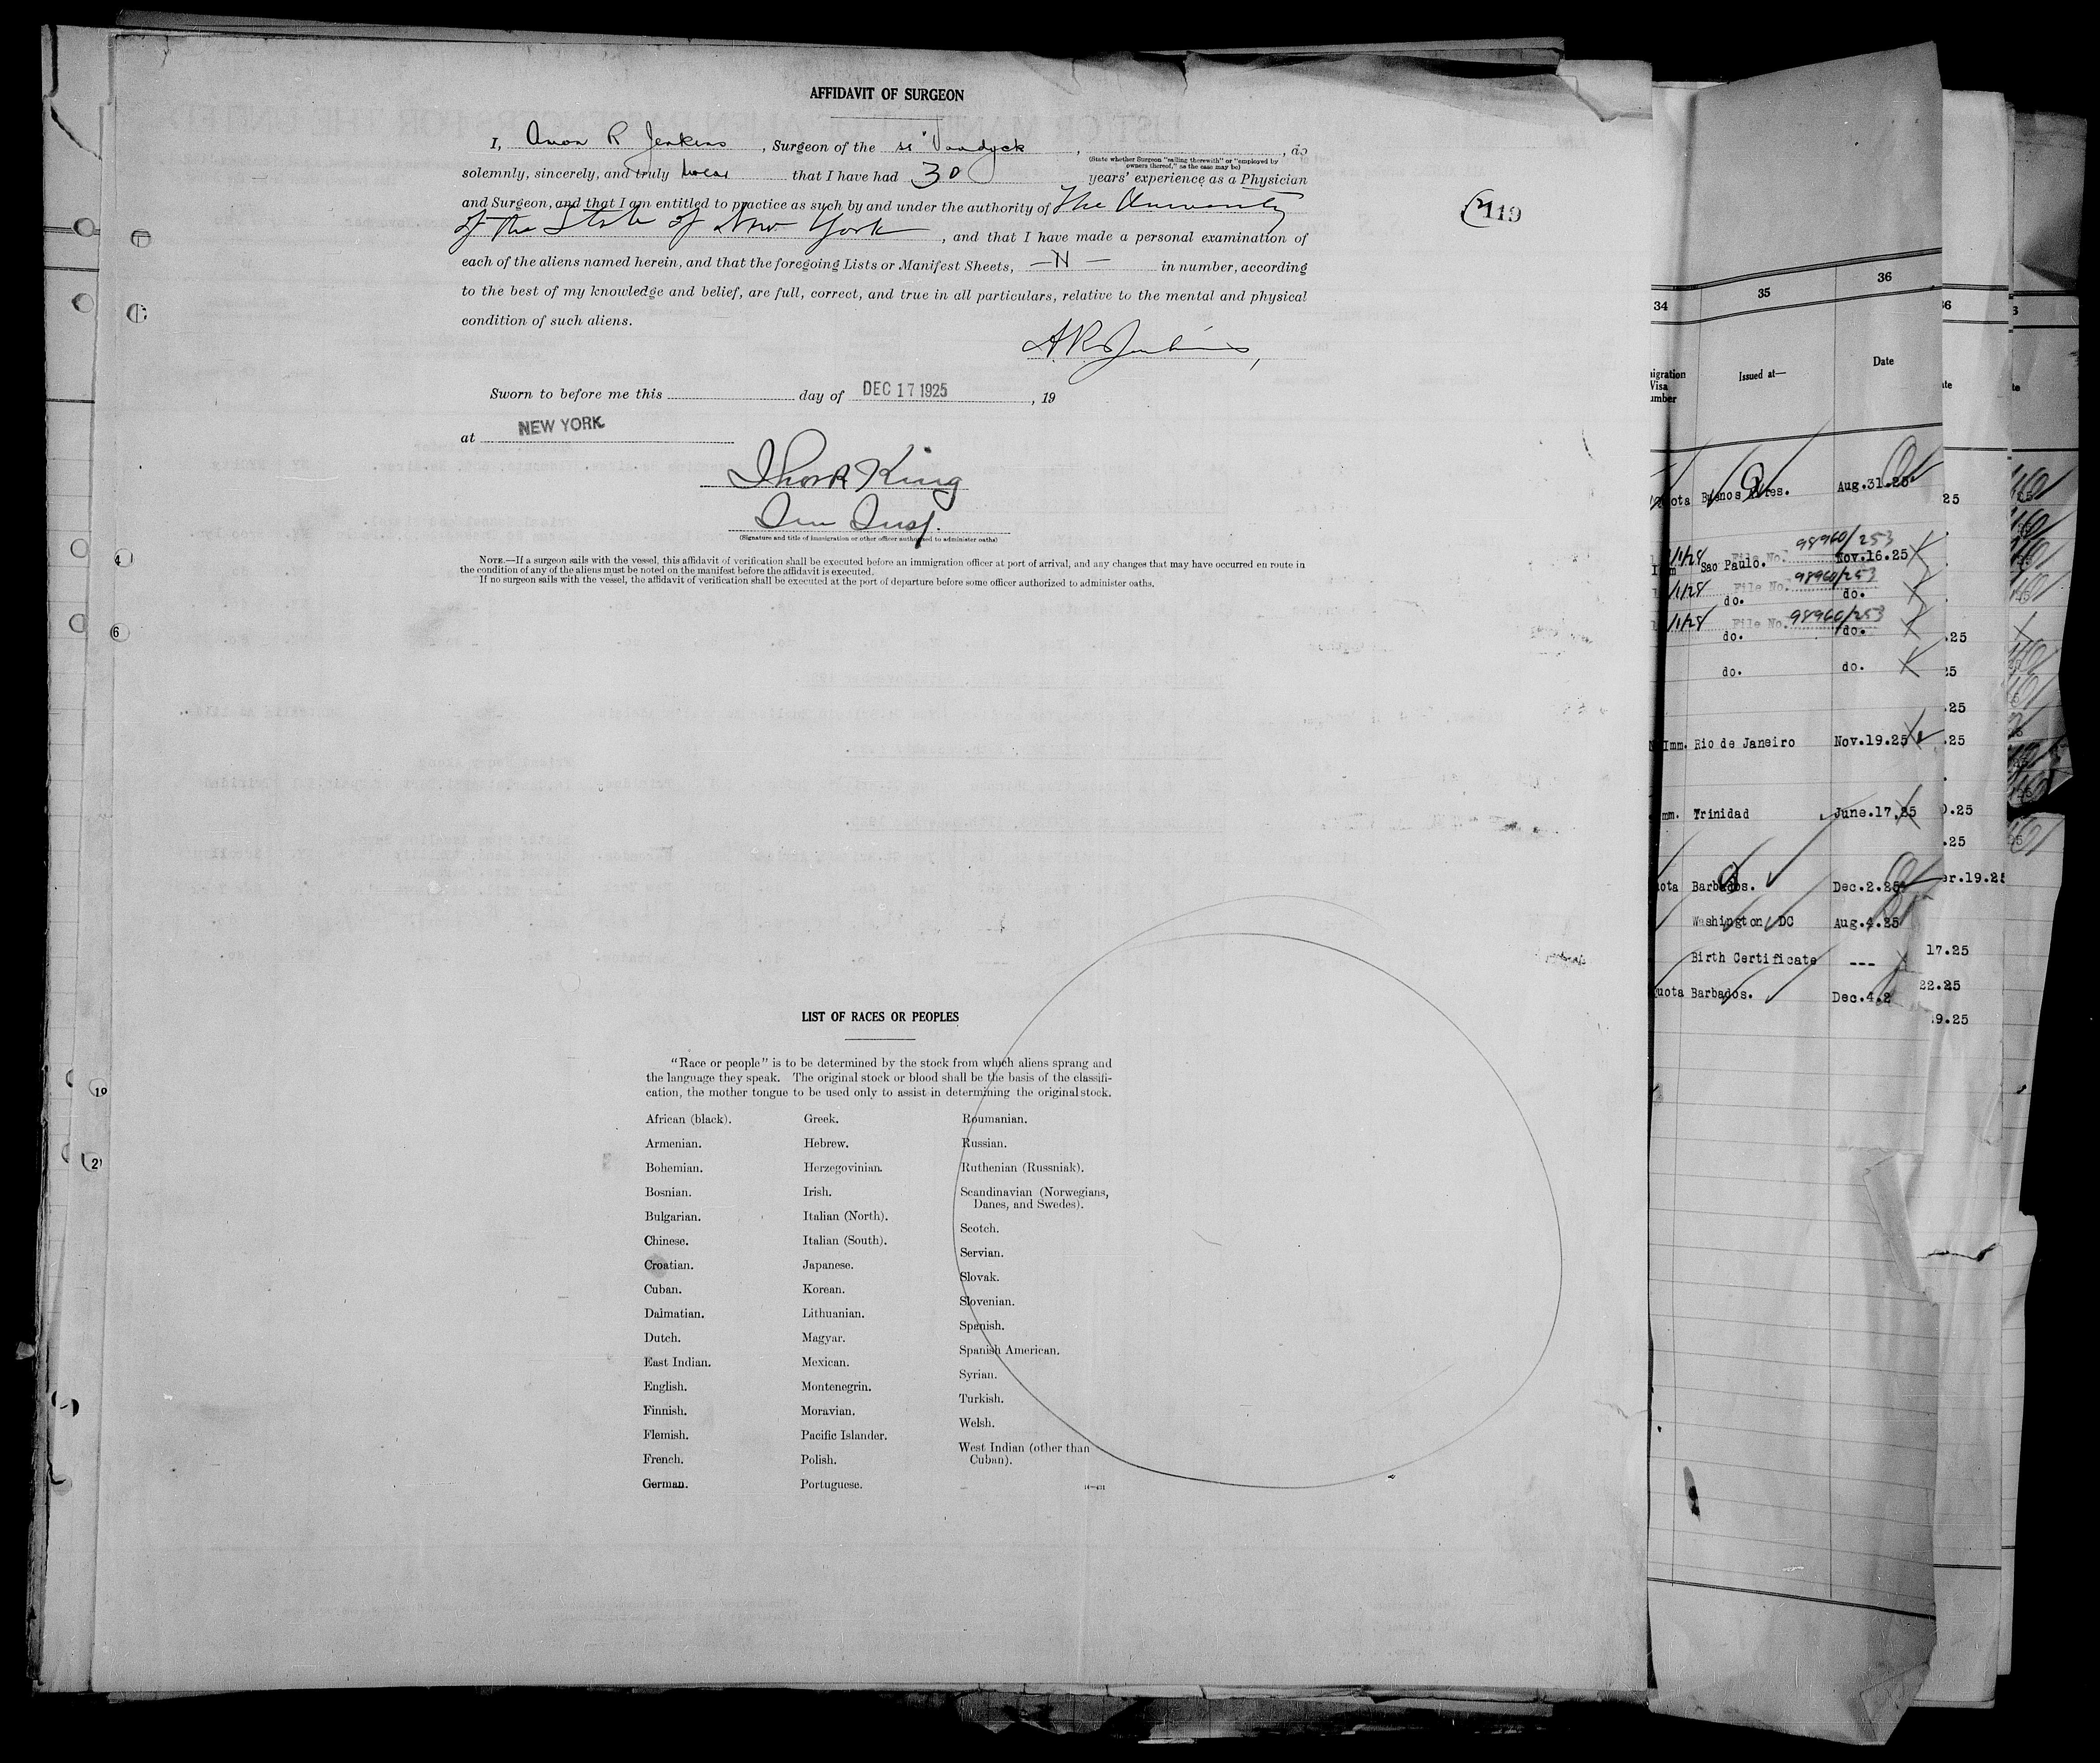 AFFIDAVIT OF SURGEON
I, Amon R Jenkins, Surgeon of the ss Vandyck, , do
(State whether Surgeon "sailing therewith" or "employed by owners thereof," as the case may be)
solemnly, sincerely, and truly swear that I have had 30 years' experience as a Physician
and Surgeon, and that I am entitled to practice as such by and under the authority of The University
of the State of New York, and that I have made a personal examination of
each of the aliens named herein, and that the foregoing Lists or Manifest Sheets, in number, according
to the best of my knowledge and belief, are full, correct, and true in all particulars, relative to the mental and physical
condition of such aliens.
A.R. Jenkins,
119
Sworn to before me this day of DEC 17 1925, 19
at NEW YORK
Thos R King
Imm Insp.
(Signature and title of immigration or other officer authorized to administer oaths)
NOTE.—If a surgeon sails with the vessel, this affidavit of verification shall be executed before an immigration officer at port of arrival, and any changes that may have occurred en route in
the condition of any of the aliens must be noted on the manifest before the affidavit is executed.
If no surgeon sails with the vessel, the affidavit of verification shall be executed at the port of departure before some officer authorized to administer oaths.
4
6
19
21
LIST OF RACES OR PEOPLES
"Race or people" is to be determined by the stock from which aliens sprang and
the language they speak. The original stock or blood shall be the basis of the classifi-
cation, the mother tongue to be used only to assist in determining the original stock.
African (black).
Armenian.
Bohemian.
Bosnian.
Bulgarian.
Chinese.
Croatian.
Cuban.
Dalmatian.
Dutch.
East Indian.
English.
Finnish.
Flemish.
French.
German.
Greek.
Hebrew.
Herzegovinian.
Irish.
Italian (North).
Italian (South).
Japanese.
Korean.
Lithuanian.
Magyar.
Mexican.
Montenegrin.
Moravian.
Pacific Islander.
Polish.
Portuguese.
Roumanian.
Russian.
Ruthenian (Russniak).
Scandinavian (Norwegians,
Danes, and Swedes).
Scotch.
Servian.
Slovak.
Slovenian.
Spanish.
Spanish American.
Syrian.
Turkish.
Welsh.
West Indian (other than
Cuban).
34 35 36
Issued at— Date
Buenos Aires. Aug.31.25
File No. 98960/253
Sao Paulo. Nov.16.25
File No. 98960/253
do. do.
File No. 98960/253
do. do.
do. do.
Imm. Rio de Janeiro Nov.19.25
mm. Trinidad June.17.25
ota Barbados. Dec.2.25
Washington DC Aug.4.25
Birth Certificate ---
uota Barbados. Dec.4.2
25
.25
25
.25
.25
.25
.25
er.19.25
17.25
22.25
9.25